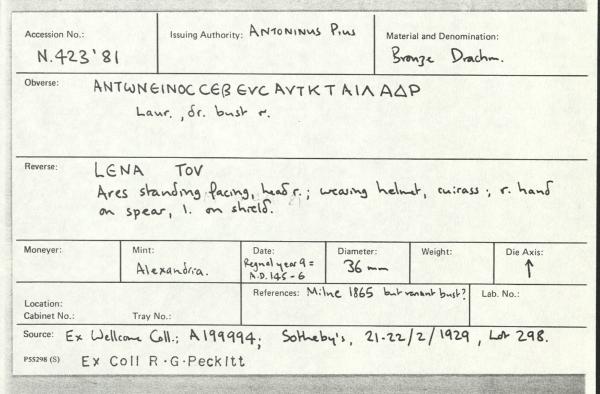 Accession No.: N.423'81
Issuing Authority: Antoninus Pius
Material and Denomination: Bronze Drachm.
Obverse: ΑΝΤWΝΕΙΝΟC CЄΒ ЄVC ΑVΤΚ Τ ΑΙΛ ΑΔΡ
Laur., dr. bust r.
Reverse: LЄΝΑ ΤΟV
Ares standing facing, head r.; wearing helmet, cuirass; r. hand
on spear, l. on shield.
Moneyer:
Mint: Alexandria.
Date: Regnal year 9 =
A.D. 145-6
Diameter: 36 mm
Weight:
Die Axis: ↑
Location:
Cabinet No.: Tray No.:
References: Milne 1865 but variant bust?
Lab. No.:
Source: Ex Wellcome Coll.; A199994; Sotheby's, 21-22/2/1929, Lot 298.
P55298 (S) Ex Coll R.G.Peckitt